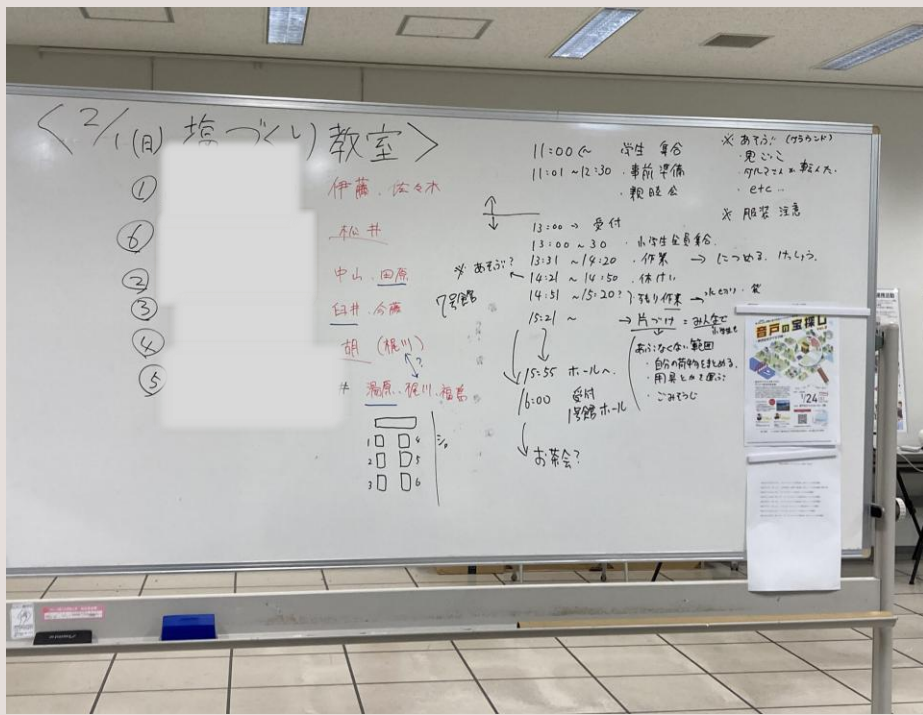 <2/1(日) 塩づくり教室>
① 伊藤、佐々木
⑥ 松井
② 中山、田原
③ 臼井、今藤
④ 胡 (梶川)
?
⑤ 湯原、梶川、福島
1 4
2 5
3 6
11:00 学生 集合
11:01~12:30 ・事前準備
・親睦会
13:00→ 受付
13:00~30 ・小学生全員集合
13:31~14:20 ・作業 → につめる、けっしょう
※あそぶ?
14:21~14:50 ・休けい
7号館
14:51~15:20?・残り作業→ 水きり・袋
15:21~ →片づけ=みんなで
小学生も
あぶなくない範囲
・自分の荷物をまとめる
・用具とかを運ぶ
・ごみそうじ
15:55 ホールへ
16:00 受付
1号館ホール
お茶会?
※あそぶ (グラウンド)
・鬼ごっこ
・ダルマさんが転んだ
・etc...
※服装 注意
音戸の宝探し
1/24